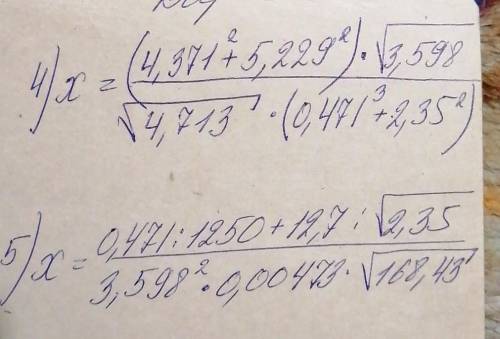 4) x = (4,371² + 5,229²) · √3,598
√4,713 · (0,471³ + 2,35²)
5) x = 0,471 : 1250 + 12,7 : √2,35
3,598² · 0,00473 · √168,43